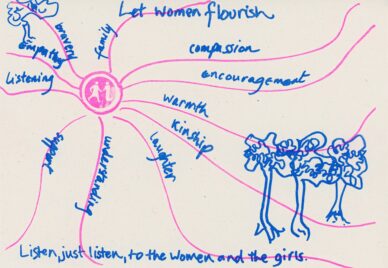 Let women flourish
bravery
family
empathy
compassion
listening
encouragement
warmth
kinship
laughter
understanding
support
Listen, just listen, to the women and the girls.